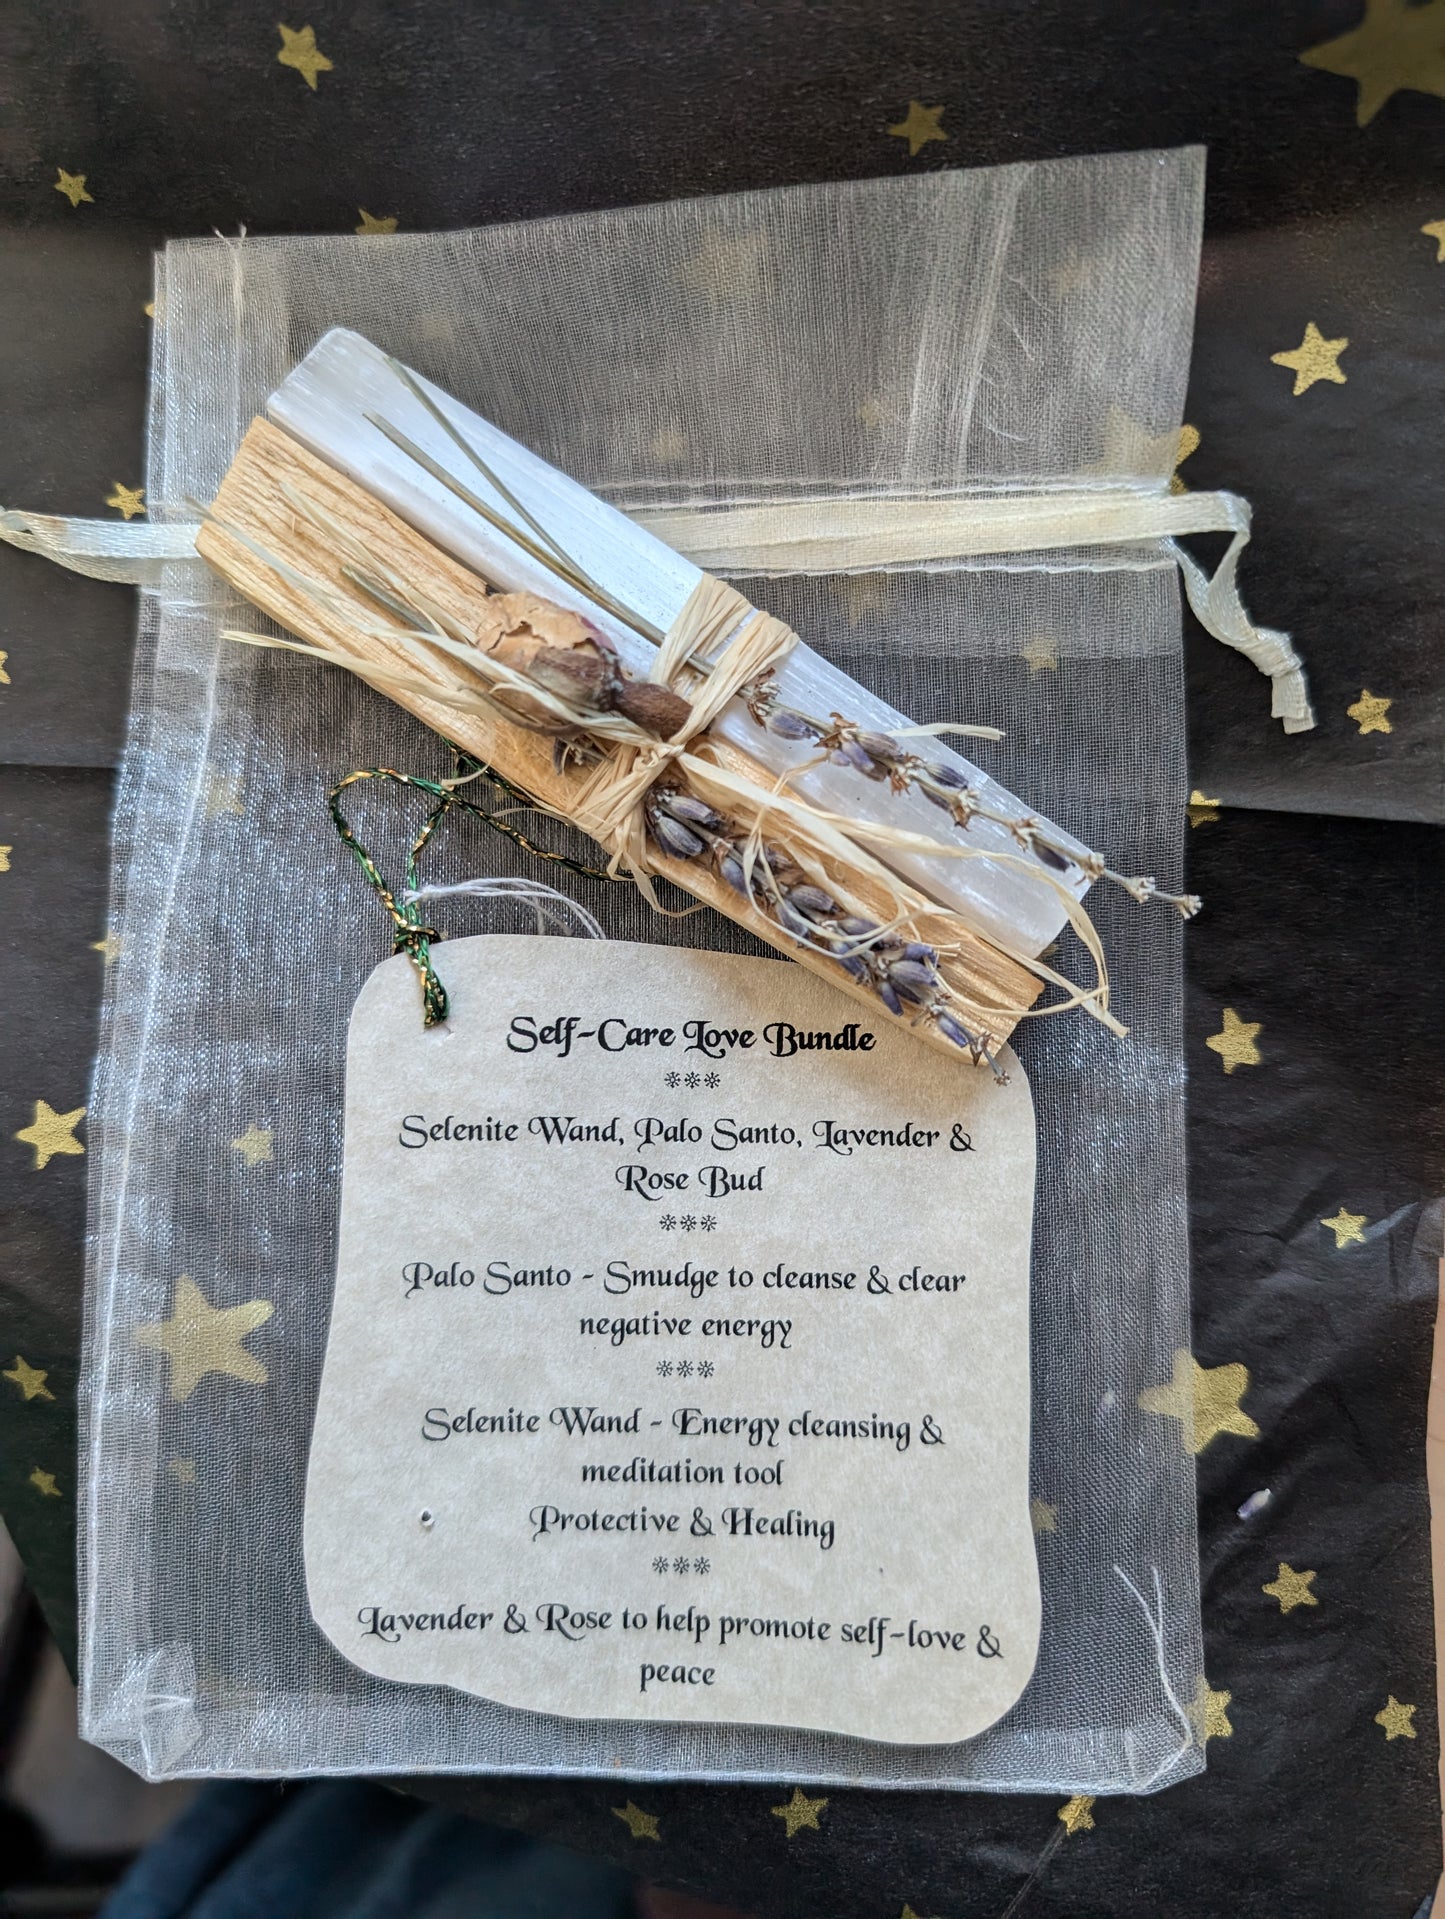 Self-Care Love Bundle
***
Selenite Wand, Palo Santo, Lavender &
Rose Bud
***
Palo Santo - Smudge to cleanse & clear
negative energy
***
Selenite Wand - Energy cleansing &
meditation tool
Protective & Healing
***
Lavender & Rose to help promote self-love &
peace